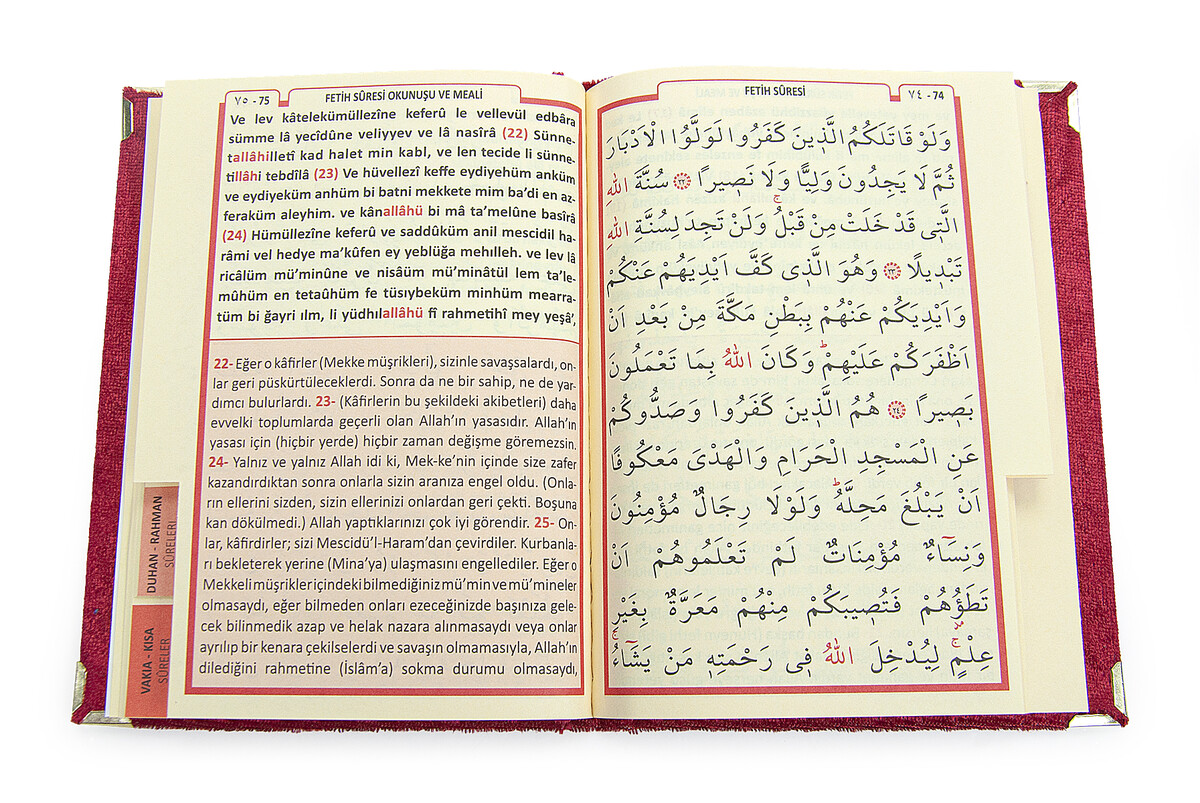 ٧٤ - 74
FETİH SÛRESİ
وَلَوْ قَاتَلَكُمُ الَّذِينَ كَفَرُوا لَوَلَّوُا الْاَدْبَارَ
ثُمَّ لَا يَجِدُونَ وَلِيًّا وَلَا نَصِيرًا ﴿٢٢﴾ سُنَّةَ اللهِ
الَّتِى قَدْ خَلَتْ مِنْ قَبْلُۚ وَلَنْ تَجِدَ لِسُنَّةِ اللهِ
تَبْدِيلًا ﴿٢٣﴾ وَهُوَ الَّذِى كَفَّ اَيْدِيَهُمْ عَنْكُمْ
وَاَيْدِيَكُمْ عَنْهُمْ بِبَطْنِ مَكَّةَ مِنْ بَعْدِ اَنْ
اَظْفَرَكُمْ عَلَيْهِمْۜ وَكَانَ اللهُ بِمَا تَعْمَلُونَ
بَصِيرًا ﴿٢٤﴾ هُمُ الَّذِينَ كَفَرُوا وَصَدُّوكُمْ
عَنِ الْمَسْجِدِ الْحَرَامِ وَالْهَدْىَ مَعْكُوفًا
اَنْ يَبْلُغَ مَحِلَّهُۜ وَلَوْلَا رِجَالٌ مُؤْمِنُونَ
وَنِسَٓاءٌ مُؤْمِنَاتٌ لَمْ تَعْلَمُوهُمْ اَنْ
تَطَؤُ۫هُمْ فَتُصِيبَكُمْ مِنْهُمْ مَعَرَّةٌ بِغَيْرِ
عِلْمٍۚ لِيُدْخِلَ اللهُ فِى رَحْمَتِهِ مَنْ يَشَٓاءُۚ
٧٥ - 75
FETİH SÛRESİ OKUNUŞU VE MEALİ
Ve lev kâtelekümüllezîne keferû le vellevül edbâra
sümme lâ yecîdûne veliyyev ve lâ nasîrâ (22) Sünne-
tallâhilletî kad halet min kabl, ve len tecide li sünne-
tillâhi tebdîlâ (23) Ve hüvellezî keffe eydiyehüm anküm
ve eydiyeküm anhüm bi batni mekkete mim ba'di en az-
feraküm aleyhim. ve kânallâhü bi mâ ta'melûne basîrâ
(24) Hümüllezîne keferû ve saddûküm anil mescidil ha-
râmi vel hedye ma'kûfen ey yeblüğa mehılleh. ve lev lâ
ricâlüm mü'minûne ve nisâüm mü'minâtül lem ta'le-
mûhüm en tetaûhüm fe tüsıybeküm minhüm mearra-
tüm bi ğayri ılm, li yüdhılallâhü fî rahmetihî mey yeşâ',
22- Eğer o kâfirler (Mekke müşrikleri), sizinle savaşsalardı, on-
lar geri püskürtüleceklerdi. Sonra da ne bir sahip, ne de yar-
dımcı bulurlardı. 23- (Kâfirlerin bu şekildeki akibetleri) daha
evvelki toplumlarda geçerli olan Allah'ın yasasıdır. Allah'ın
yasası için (hiçbir yerde) hiçbir zaman değişme göremezsin.
24- Yalnız ve yalnız Allah idi ki, Mek-ke'nin içinde size zafer
kazandırdıktan sonra onlarla sizin aranıza engel oldu. (Onla-
rın ellerini sizden, sizin ellerinizi onlardan geri çekti. Boşuna
kan dökülmedi.) Allah yaptıklarınızı çok iyi görendir. 25- On-
lar, kâfirdirler; sizi Mescidü'l-Haram'dan çevirdiler. Kurbanla-
rı bekleterek yerine (Mina'ya) ulaşmasını engellediler. Eğer o
Mekkeli müşrikler içindeki bilmediğiniz mü'min ve mü'mineler
olmasaydı, eğer bilmeden onları ezeceğinizde başınıza gele-
cek bilinmedik azap ve helak nazara alınmasaydı veya onlar
ayrılıp bir kenara çekilselerdi ve savaşın olmamasıyla, Allah'ın
dilediğini rahmetine (İslâm'a) sokma durumu olmasaydı,
DUHAN - RAHMAN
SÛRELERİ
VAKIA - KISA
SÛRELER